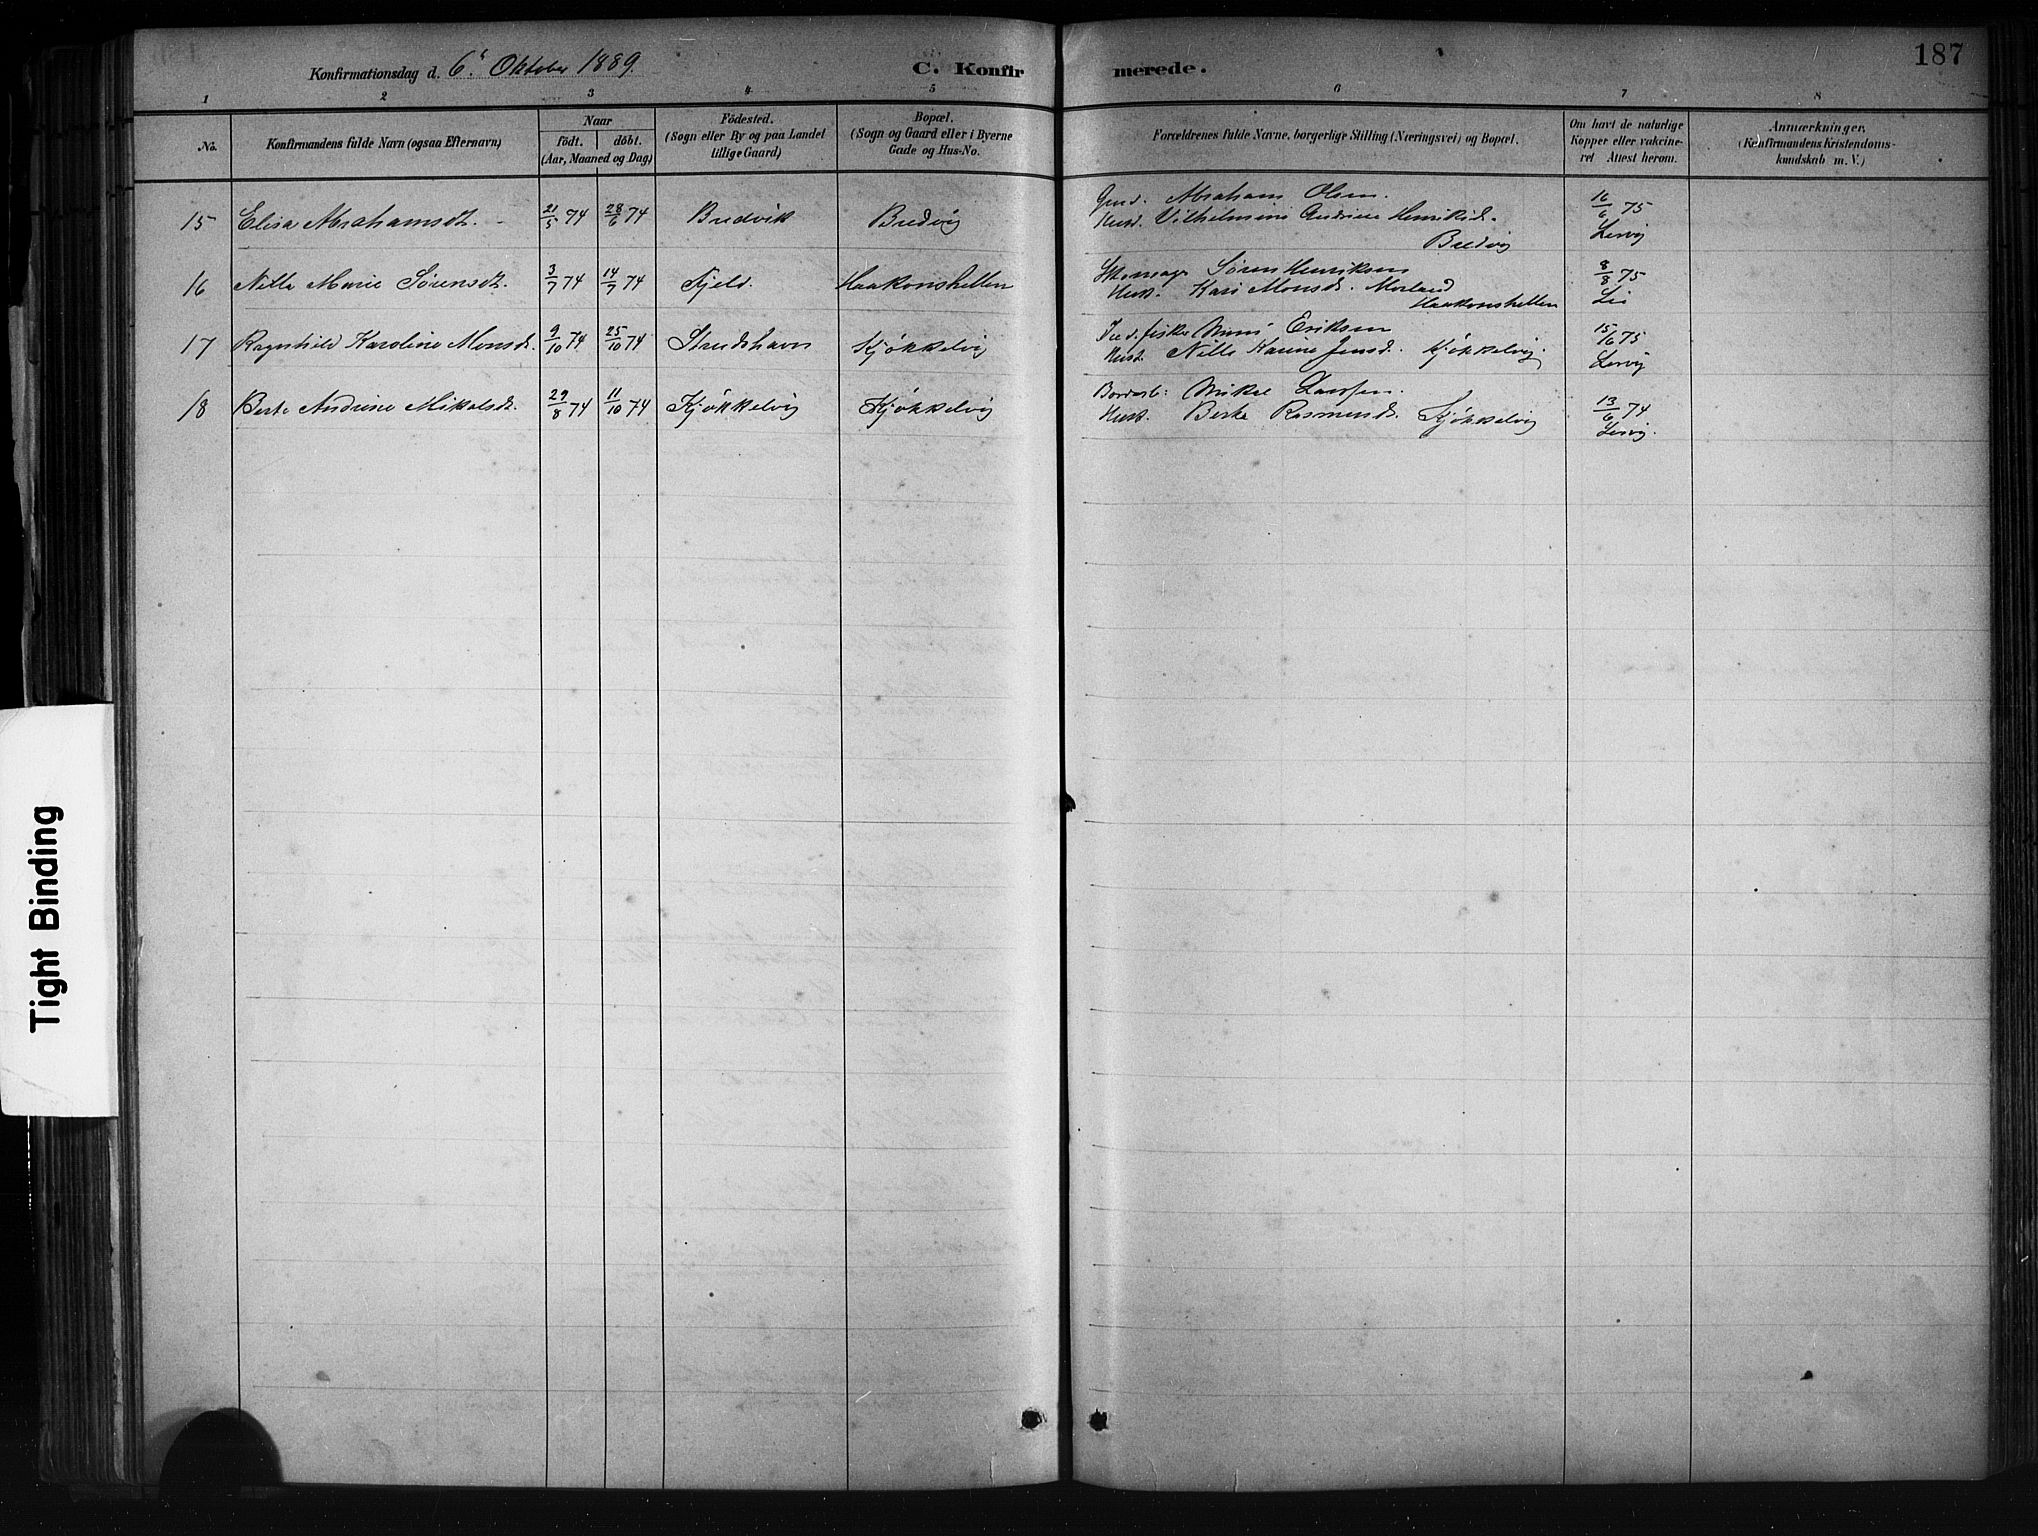 Konfirmationsdag d. 6te Oktober 1889.
C. Konfirmerede.
187
1 2 3 4 5 6 7 8
No.
Konfirmandens fulde Navn (ogsaa Efternavn)
Naar
födt. döbt.
(Aar, Maaned og Dag)
Födested.
(Sogn eller By og paa Landet
tillige Gaard)
Bopæl.
(Sogn og Gaard eller i Byerne
Gade og Hus-No.
Forældrenes fulde Navne, borgerlige Stilling (Næringsvei) og Bopæl.
Om havt de naturlige
Kopper eller vakcine-
ret Attest herom.
Anmærkninger.
(Konfirmandens Kristendoms-
kundskab m. V.)
15 Elisa Abrahamsdt. 21/5 74 28/6 74 Bredvik Bredvig
Gmd. Abraham Olsen.
Hust. Vilhelmine Andrine Henriksd.
Bredvig
16/6 75
Lervig
16 Nille Marie Sörensdt. 3/7 74 14/7 74 Fjeld Haakonshellen
Skomager Sören Henriksen
Hust. Kari Monsd. Morland
Haakonshellen
8/8 75
Lie
17 Ragnhild Karoline Monsd. 9/10 74 25/10 74 Strudshavn Kjökkelvig
Ind. fisker Mons Eriksen
Hust. Nille Karine Jensd. Kjökkelvig.
15/6 75
Lervig
18 Berte Andrine Mikalsdt. 29/8 74 11/10 74 Kjökkelvig Kjökkelvig
Mikal Larssen.
Hust. Berte Rasmusd. Kjökkelvig
13/6 74
Lervig.
Tight Binding